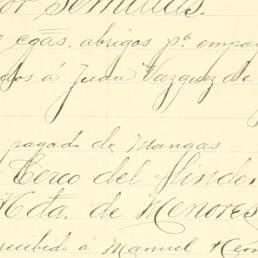 or Semillas.
e cajas. abrigos pa. empa
dos á Juan Vazquez de
pagado de Mangas
Cerco del linder
Hda. de Menores
recibido á Manuel Her